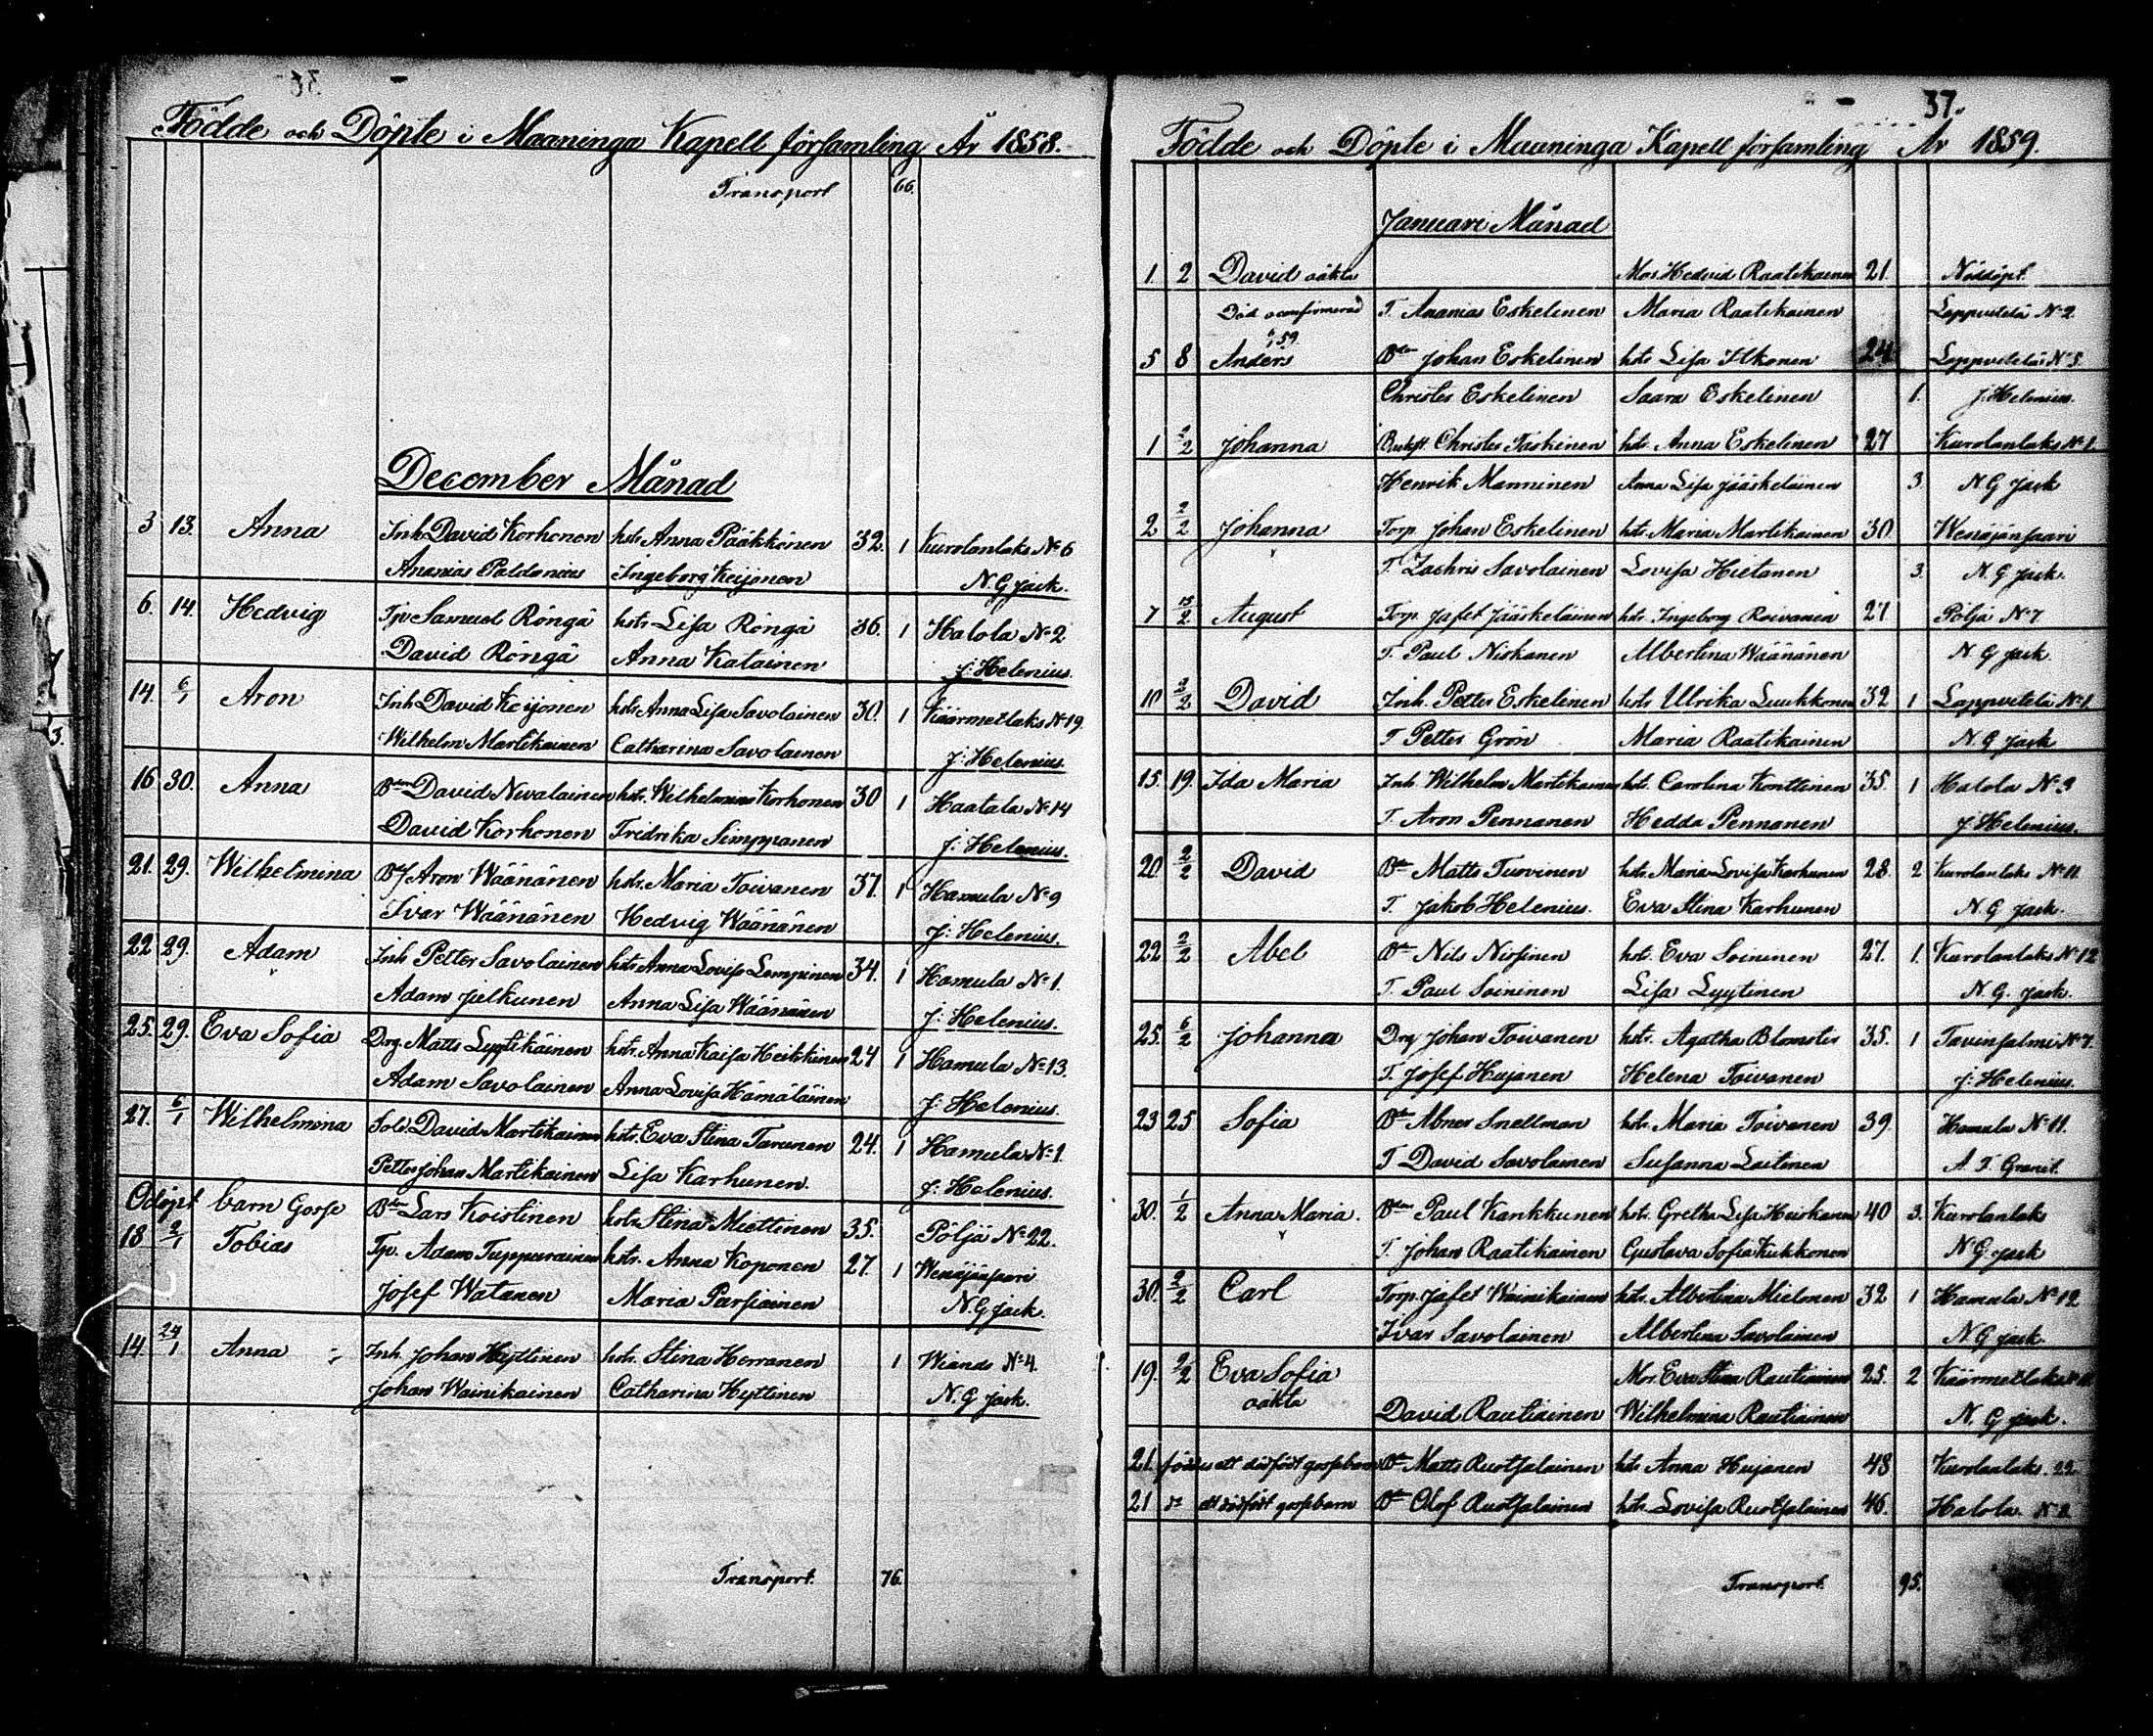 Födde och Döpte i Maaninga Kapell församling År 1858.
Transport 66.
December Månad
3 13. Anna Inh. David Korhonen hstr. Anna Pääkkönen 32. 1 Kurolanlaks No 6
Ananias Paldanius Ingeborg Keijonen N. G. Jack.
6. 14. Hedvig Tp. Samuel Röngä hstr. Lisa Röngä 36. 1 Halola No 2
David Röngä Anna Katainen J: Helenius.
14. 6/1 Aron Inh. David Keijonen hstr. Anna Lisa Savolainen 30. 1 Käärmetlaks No 19.
Wilhelm Martikainen Catharina Savolainen J: Helenius.
16 30. Anna Bden David Nevalainen hstr. Wilhelmina Korhonen 30 1 Haatala No 14
David Korhonen Fredrika Simppanen J: Helenius.
21. 29. Wilhelmina Aron Wäänänen hstr. Maria Toivanen 37. 1 Hamula No 9
Ivar Wäänänen Hedvig Wäänänen J: Helenius.
22 29. Adam Inh. Petter Savolainen hstr. Anna Lovisa Lempinen 34. 1 Hamula No 1.
Adam Jelkunen Anna Lisa Wäänänen J: Helenius.
25. 29. Eva Sofia Drg. Matts Lyytikäinen hstr. Anna Kaisa Heikkinen 24 1 Hamula No 13.
Adam Savolainen Anna Lovisa Hämäläinen J: Helenius.
27. 6/1 Wilhelmina Sold. David Martikainen hstr. Eva Stina Tarunen 24. 1 Hamula No 1.
Petter Johan Martikainen Lisa Karhunen. J: Helenius.
Odöpt barn Gosse Bden Lars Koistinen hstr. Stina Miettinen 35. Pöljä No 22.
18 2/1 Tobias Tp. Adam Tuppurainen hstr. Anna Koponen 27. 1 Wenäjänsaari
Josef Watanen Maria Parsiainen N. G. Jack.
14. 24/1 Anna Inh. Johan Hyttinen hstr. Stina Korranen 1 Wiands No 4.
Johan Wainikainen Catharina Hyttinen N. G. Jack.
Transport. 76.
37.
Födde och Döpte i Maaninga Kapell församling År 1859.
Januari Månad
1. 2 David oäkta Mor Hedvid Raatikainen 21. Nöddöpt.
Död oconfirmerad T. Ananias Eskelinen Maria Raatikainen Lappvetelä No 2.
5 8 Anders Bden Johan Eskelinen hstr. Lisa Itkonen 24 Lappvetelä No 3
Christer Eskelinen Saara Eskelinen 1. J. Helenius.
1 2/2 Johanna Christer Taskinen hstr. Anna Eskelinen 27 Kurolanlaks No 1.
Henrik Manninen Anna Lisa Jääskeläinen 3. N. G. Jack
2 2/2 Johanna Torp. Johan Eskelinen hstr. Maria Martikainen 30. Wenäjänsaari
T. Zachris Savolainen Lovisa Hietanen 3. N. G. Jack.
7 15/2 August Torp. Jafet Jääskeläinen hstr. Ingeborg Roivanen 27 Pöljä No 7
T. Paul Niskanen Albertina Wäänänen N. G. Jack.
10 2/2 David Inh. Petter Eskelinen hstr. Ulrika Luukkonen 32 1 Lappvetelä No 1.
T Petter Grön Maria Raatikainen N. G. Jack
15. 19. Ida Maria Inh. Wilhelm Martikainen hstr. Carolina Konttinen 35. 1 Halola No 9
T. Aron Pennanen Hedda Pennanen J. Helenius.
20 2/2 David Bden Matts Tuovinen hstr. Maria Lovisa Karhunen 28. 2 Kurolanlaks No 11.
T. Jakob Helenius. Eva Stina Karhunen N. G. Jack.
22 2/2 Abel Bden Nils Nissinen hstr. Eva Soininen 27. 1. Kurolanlaks No 12
T. Paul Soininen Lisa Lyytinen N. G. Jack.
25. 6/2 Johanna Drg Johan Toivanen hstr. Agatha Blomster 35. 1 Tavinsalmi No 7.
T. Josef Hujanen Helena Toivanen J: Helenius.
23 25 Sofia Bden Abner Snellman hstr. Maria Toivanen 39. Hamula No 11.
T David Savolainen Susanna Laitinen A. F. Granit.
30. 1/2 Anna Maria. Bden Paul Kankkunen hstr. Gretha Lisa Heiskanen 40 3. Kurolanlaks
T. Johan Raatikainen Gustava Sofia Kukkonen N. G. Jack
30. 2/2 Carl Torp. Jafet Wainikainen hstr. Albertina Mielonen 32 1 Hamula No 12
Ivar Savolainen Albertina Savolainen N. G. Jack.
19. 2/2 Eva Sofia Mor. Eva Stina Rautiainen 25. 2 Käärmetlaks
oäkta David Rautiainen Wilhelmina Rautiainen N. G. Jack.
21. föddes ett dödfödt gossebarn Bden Matts Ruotsalainen hstr. Anna Hujanen 43 Kurolanlaks. 22
21 do ett dödfödt gossebarn Bden Olof Ruotsalainen hstr. Lovisa Ruotsalainen 46. Halola. No 2
Transport. 95.